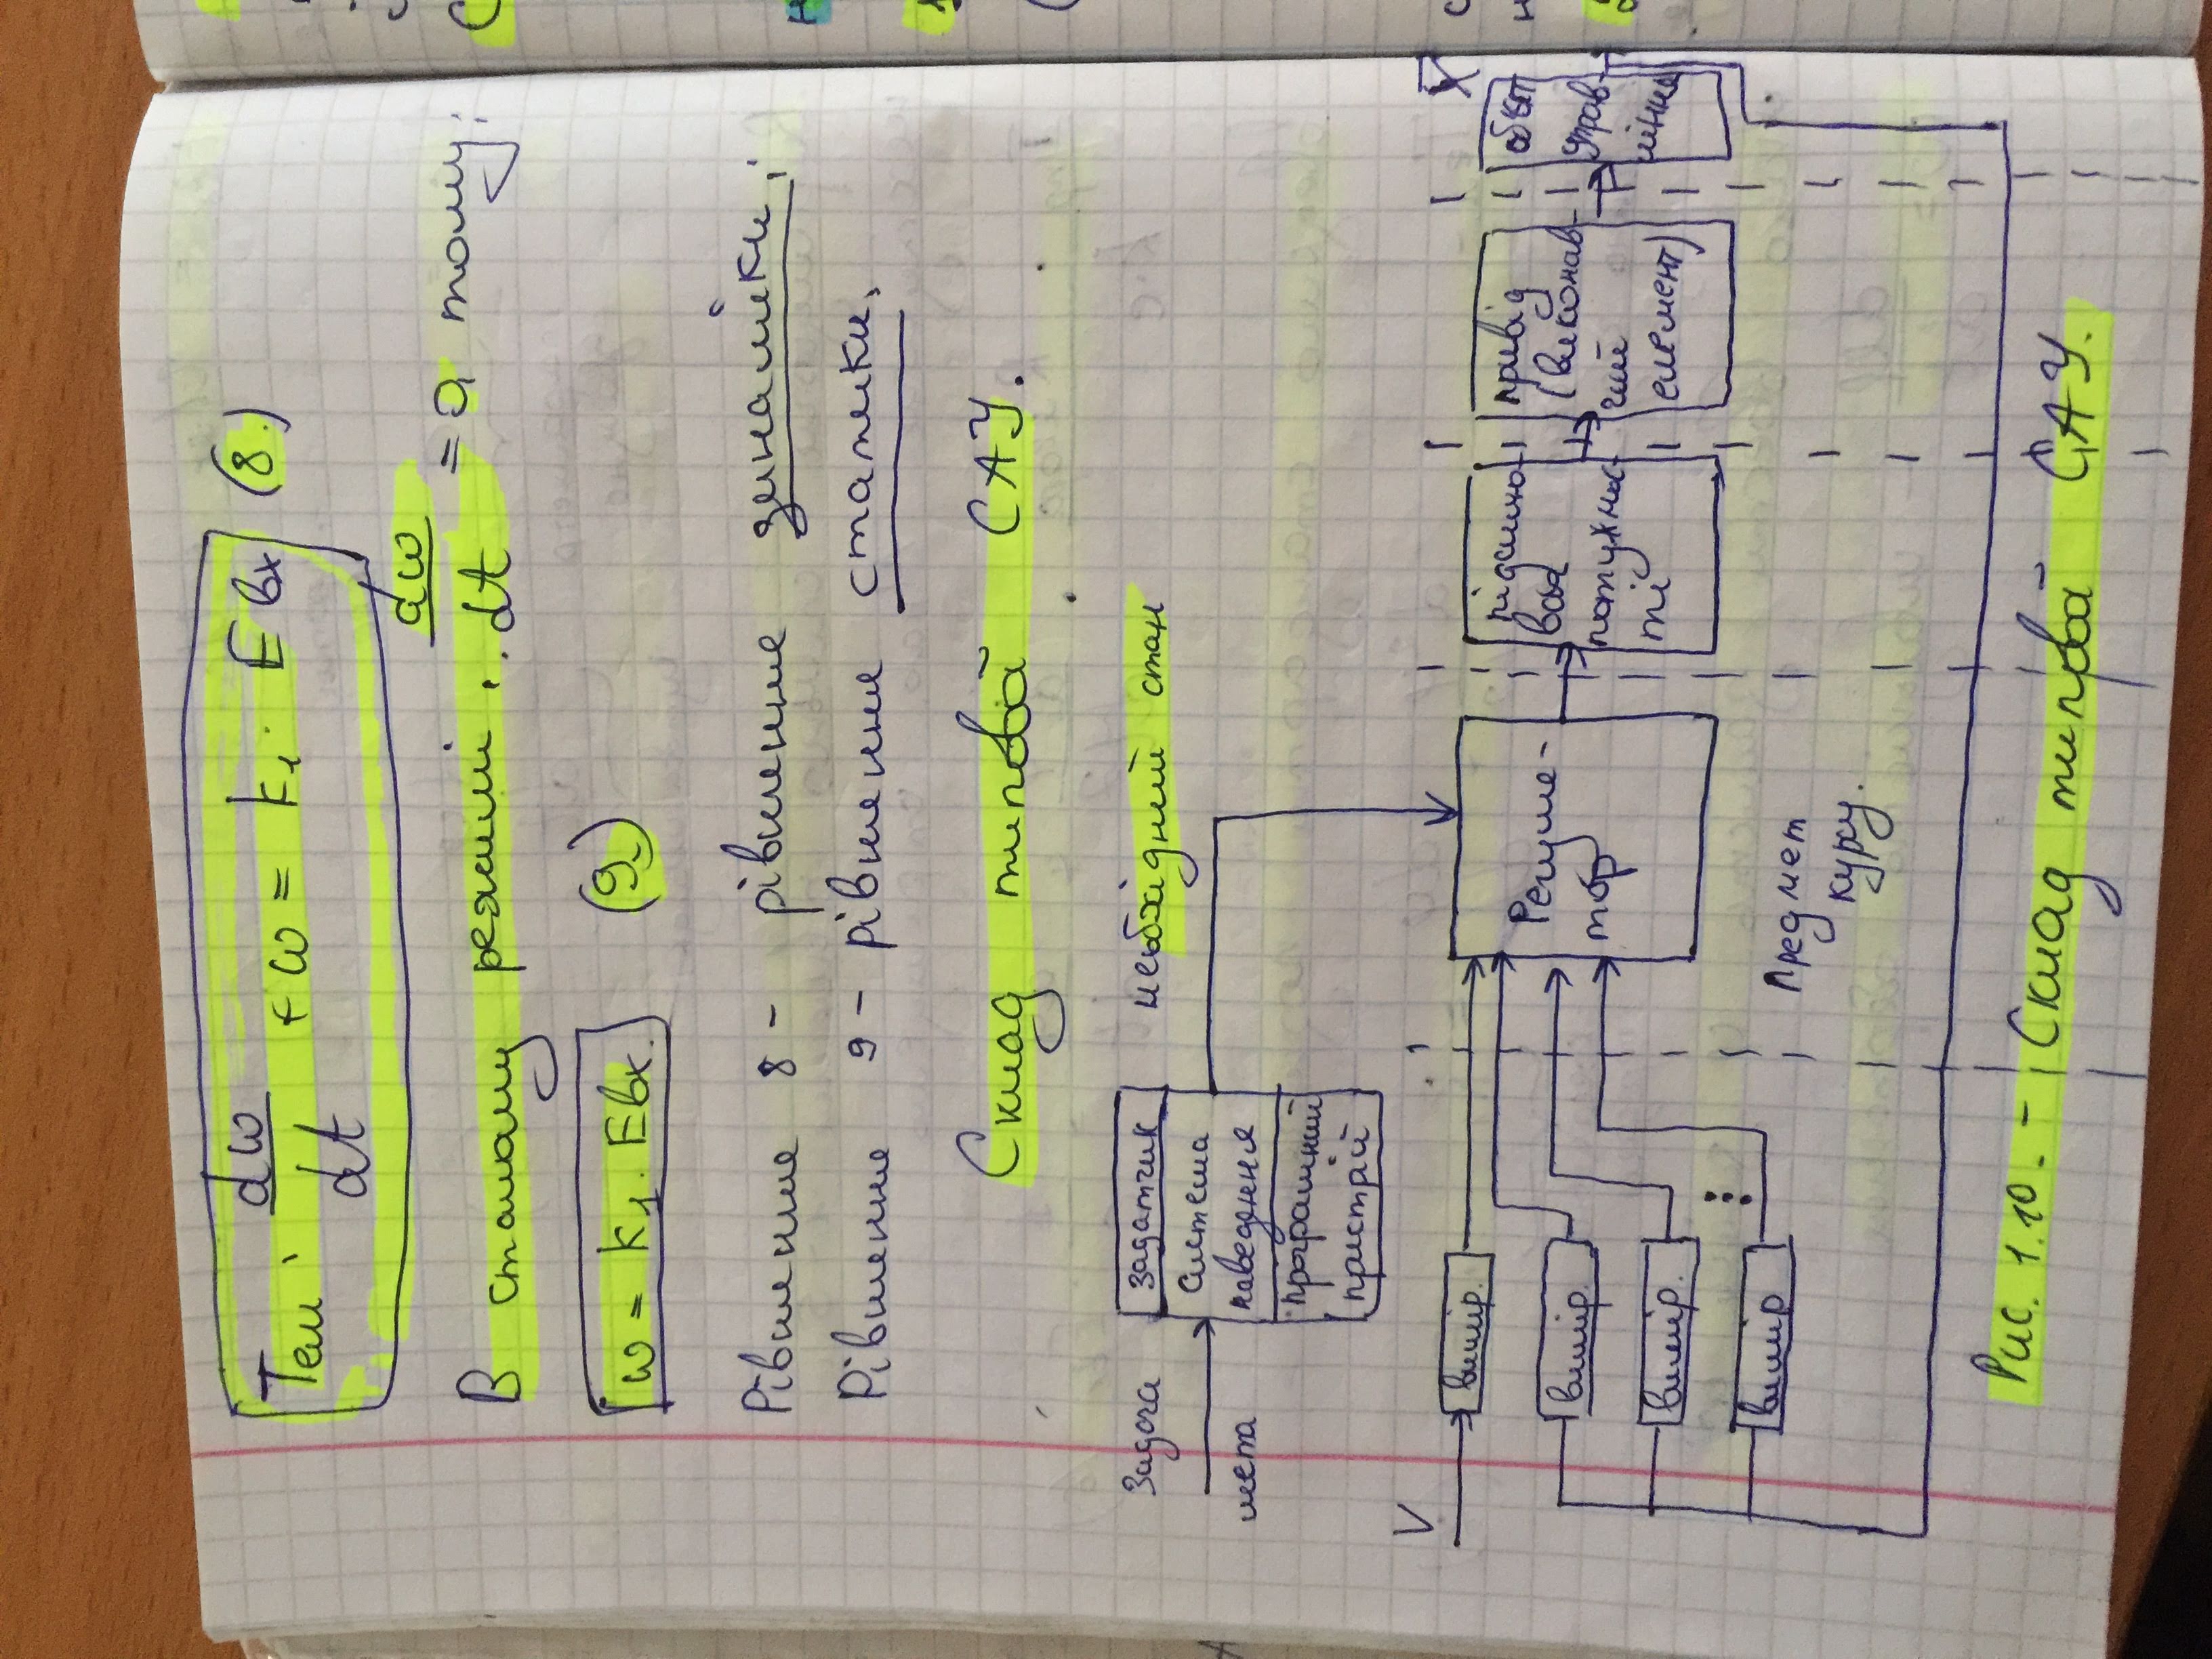 Тем · dω/dt + ω = k₁ · Eвх (8.)
В сталому режимі : dω/dt = 0, тому:
ω = k₁ · Eвх. (9.)
Рівняння 8 - рівняння динаміки;
Рівняння 9 - рівняння статики.
Склад типової САУ.
Задача
мета
задатчик
система
наведення
програмний
пристрій
необхідний стан
V
вимір.
вимір.
вимір.
вимір
Регуля-
тор
підсилю-
вач
потужнос-
ті
привід
(виконав-
чий
елемент)
X
обєкт
управ-
ління
Предмет
курсу.
Рис. 1.10. - Склад типової САУ.